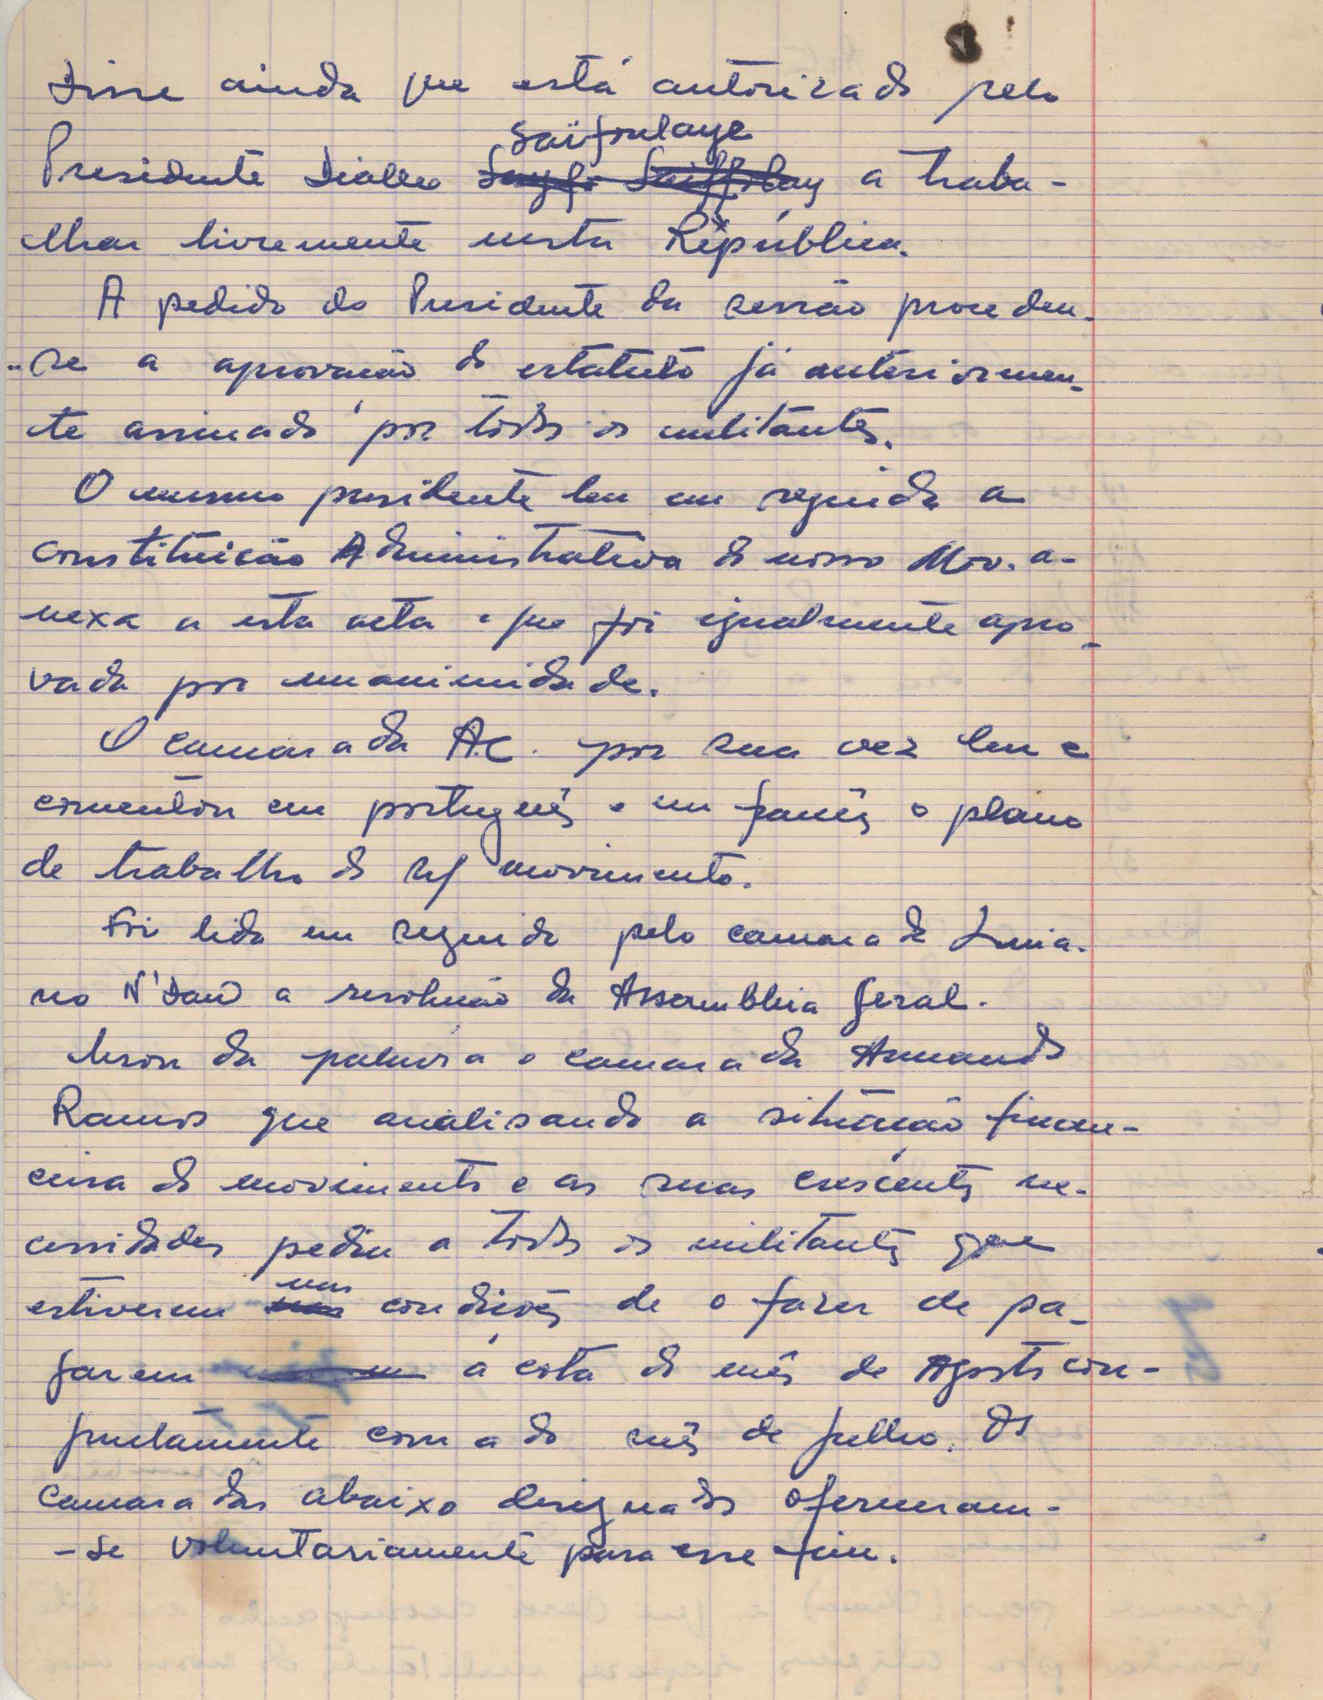 Disse ainda que está autorizado pelo
Saïfoulaye
Presidente Diallo a traba-
lhar livremente nesta República.
A pedido do Presidente da sessão procedeu-
-se a aprovação do estatuto já anteriormen-
te assinado por todos os militantes.
O mesmo presidente leu em seguida a
constituição Administrativa do nosso Mov. a-
nexa a esta acta e que foi igualmente apro-
vada por unanimidade.
O camarada A.C. por sua vez leu e
comentou em português e em francês o plano
de trabalho do n/ movimento.
Foi lida em seguida pelo camarada Lucia-
no N'Daw a resolução da Assembleia Geral.
Usou da palavra o camarada Armando
Ramos que analisando a situação finan-
ceira do movimento e as suas crescentes ne-
cessidades pediu a todos os militantes que
estiverem nas condições de o fazer de pa-
garem a cota do mês de Agosto con-
juntamente com a do mês de Julho. Os
camaradas abaixo designados ofereceram-
-se voluntariamente para esse fim.